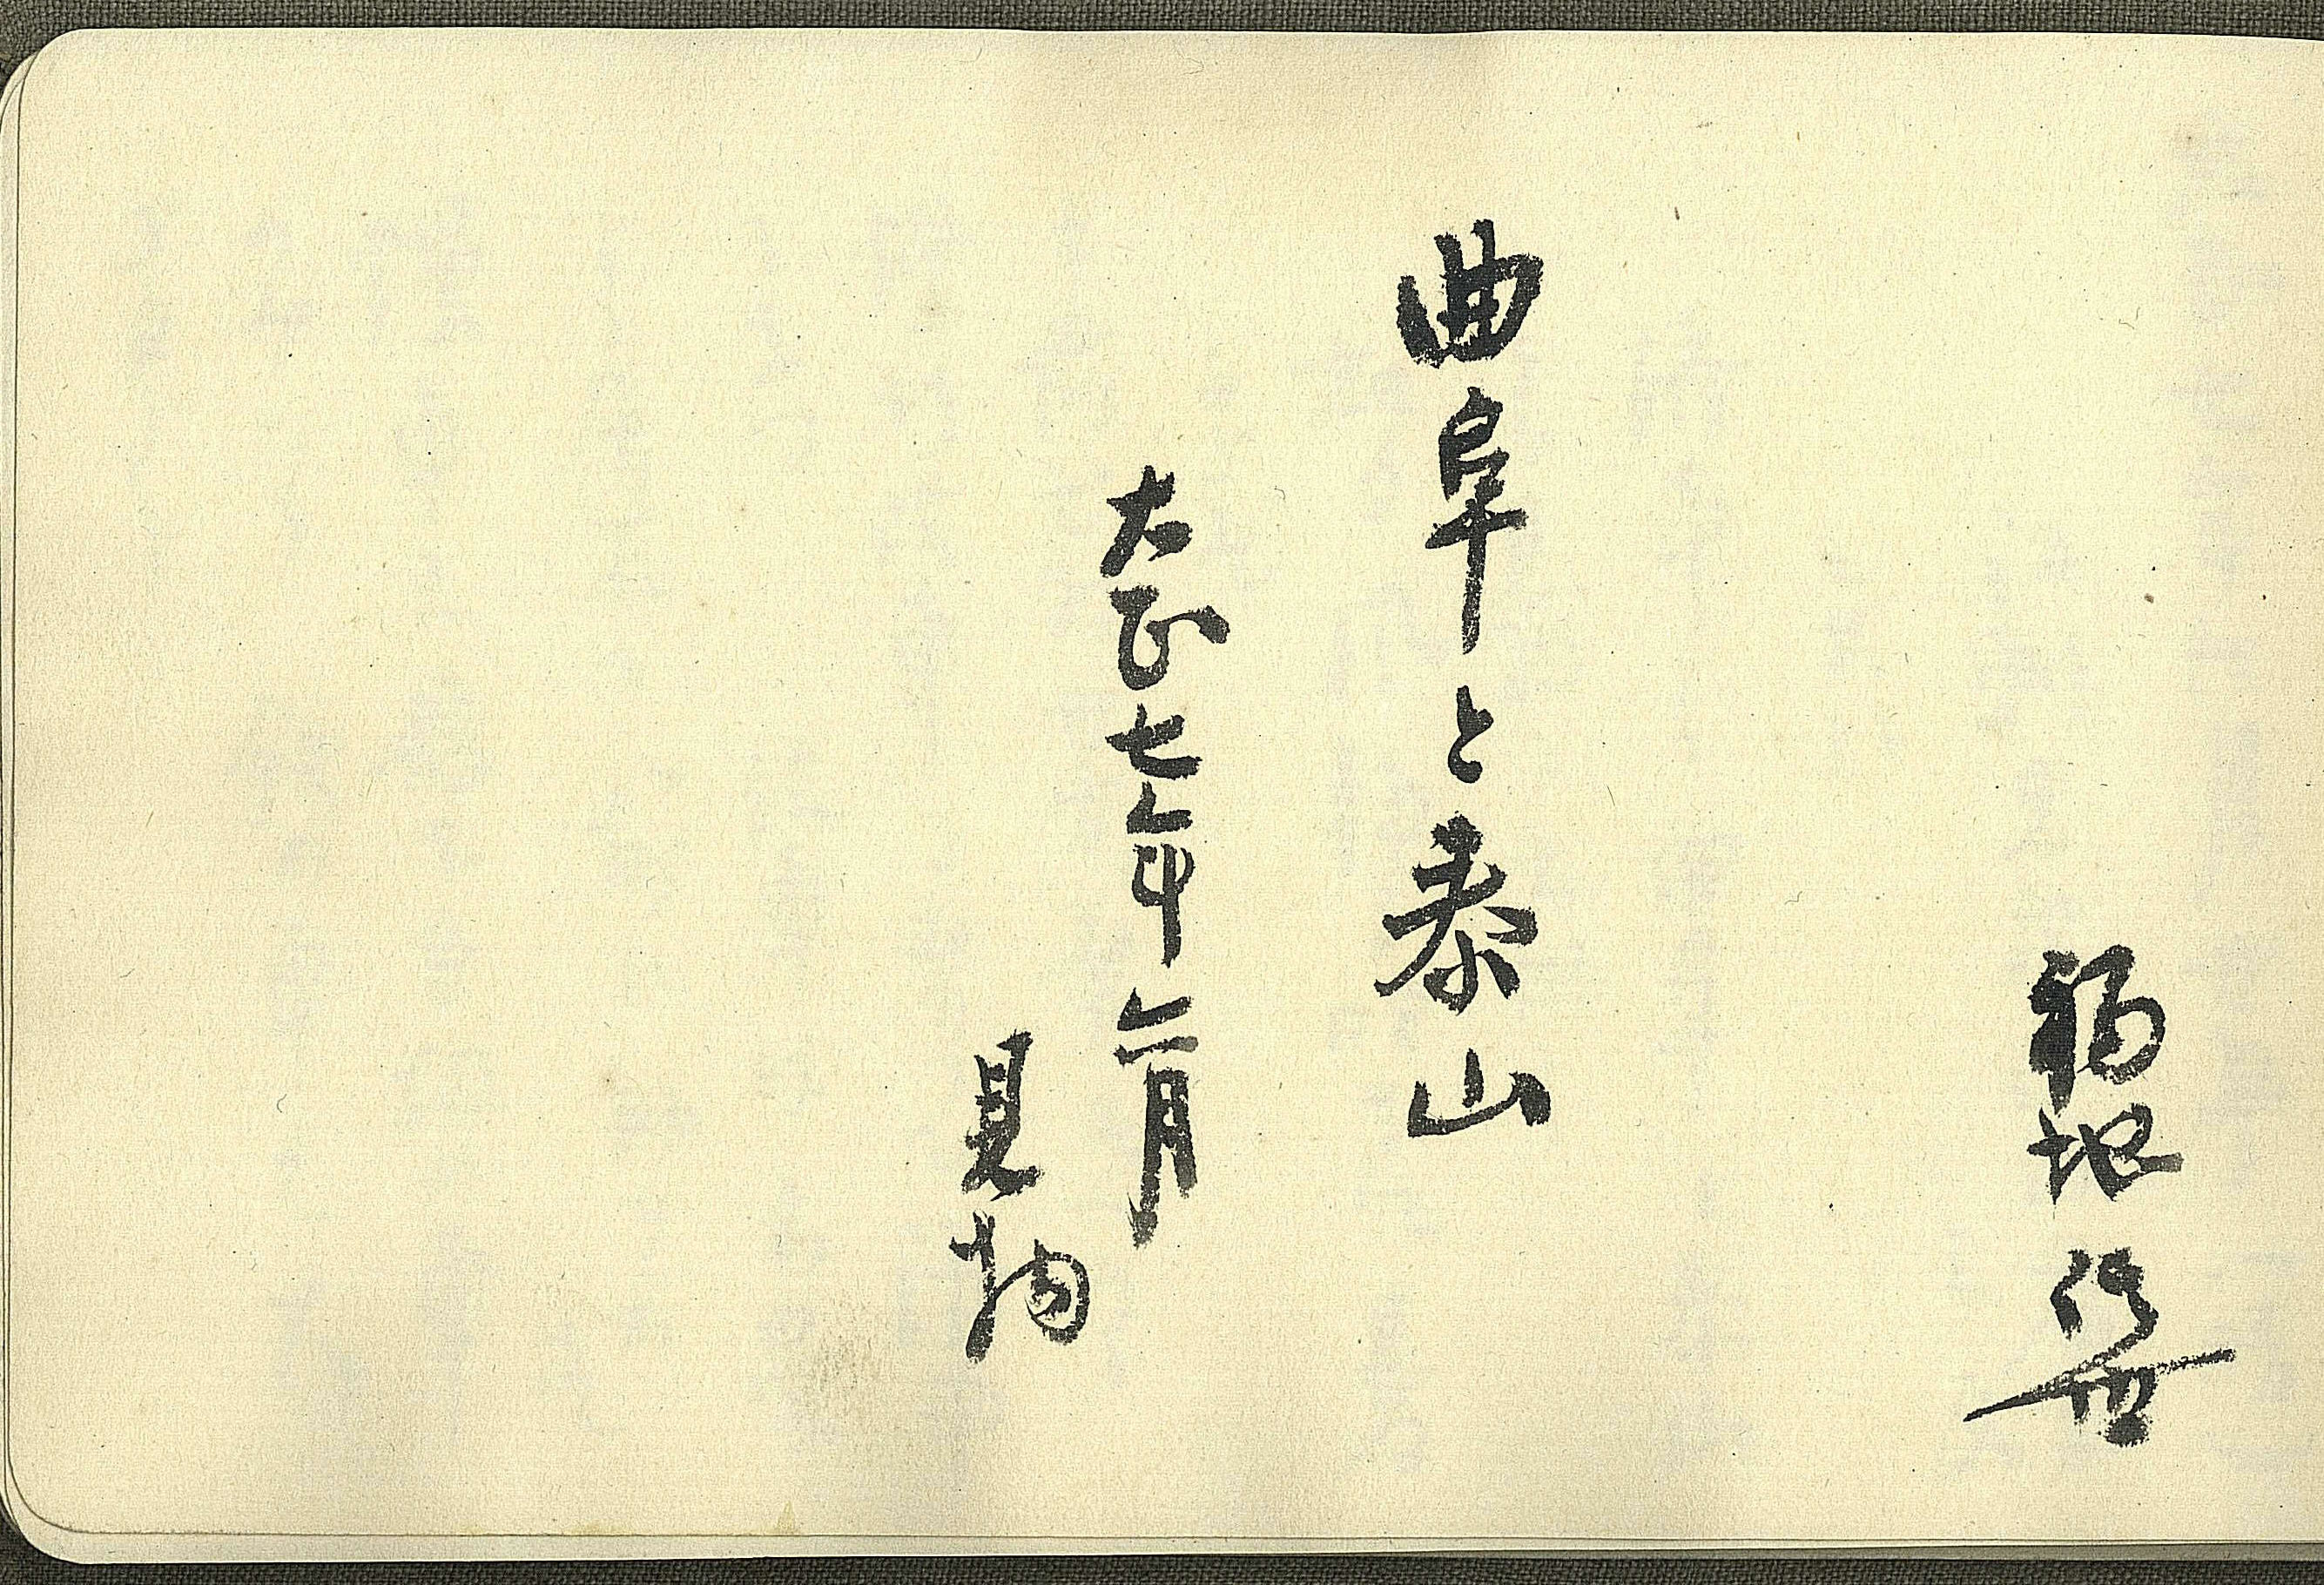 福地信世
曲阜と泰山
大正七年二月
見物